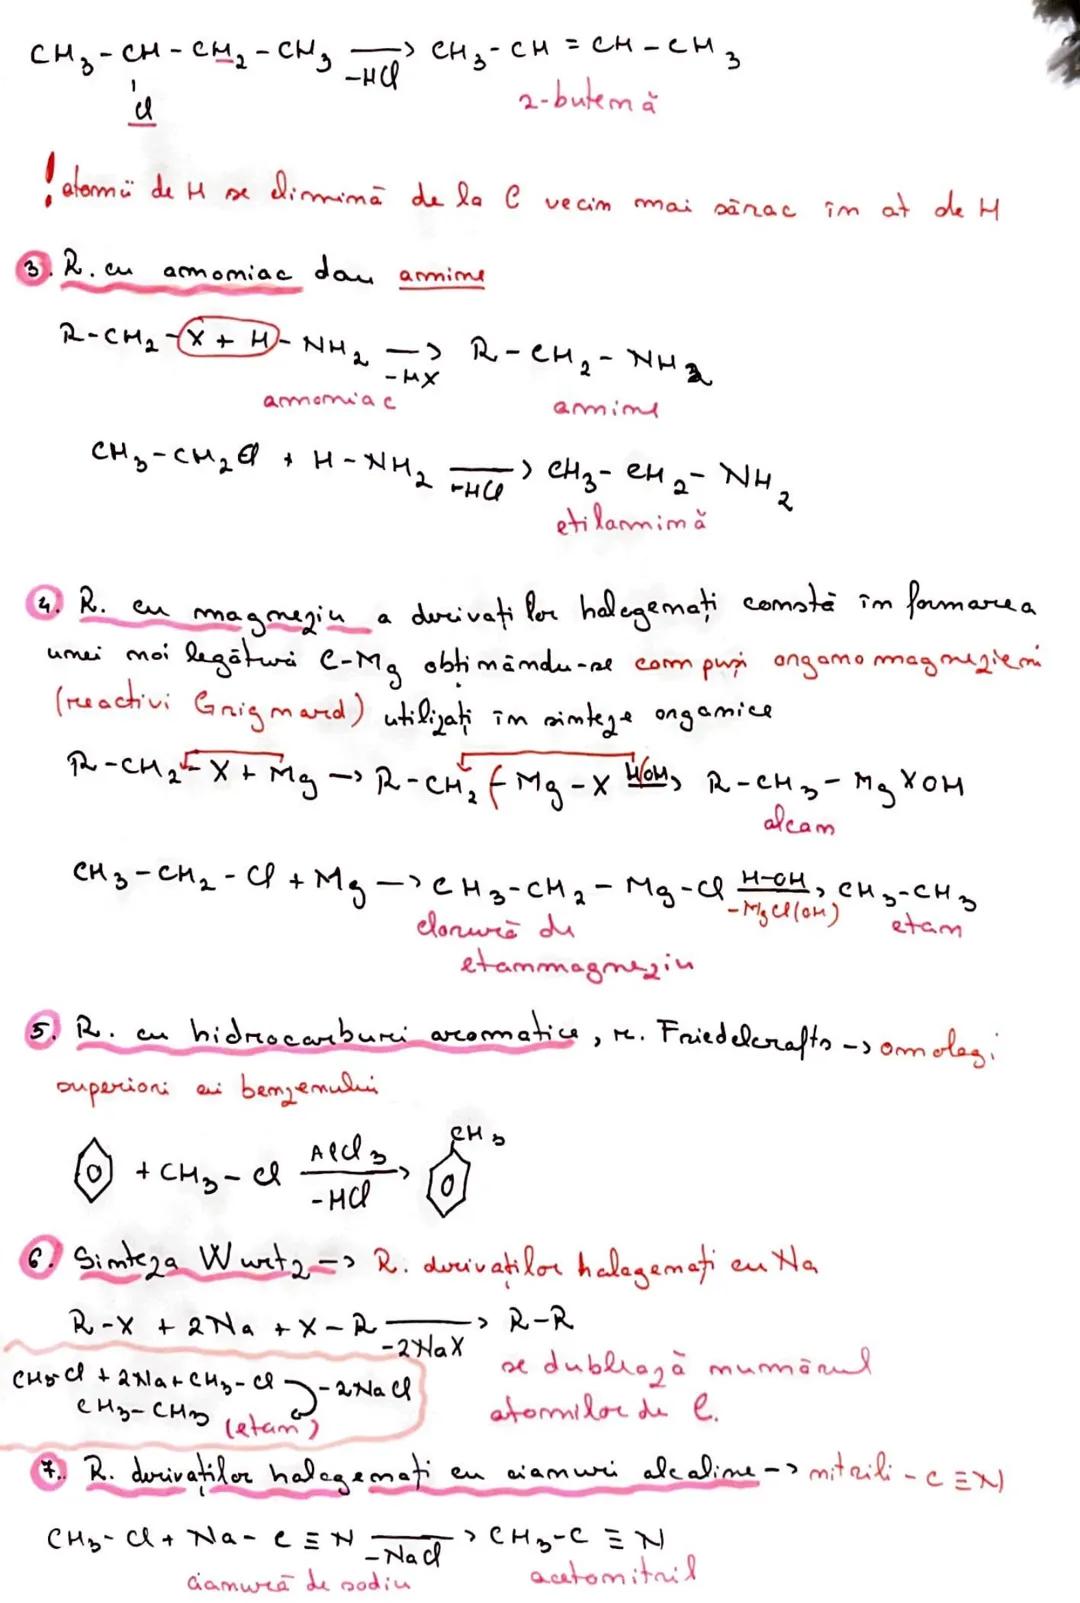 CH₃-CH-CH₂-CH₃ → CH₃-CH=CH-CH₃
-HCl
Cl
2-butenă
! atomii de H se elimină de la C vecin mai sărac în at de H
3. R. cu amoniac dau amine
R-CH₂-X + H-NH₂ → R-CH₂-NH₂
-HX
amoniac amine
CH₃-CH₂Cl + H-NH₂ → CH₃-CH₂-NH₂
-HCl
etilamină
4. R. cu magneziu a derivaților halogenați constă în formarea
unei noi legături C-Mg obținându-se compuși organomagnezieni
(reactivi Grignard) utilizați în sinteze organice
R-CH₂-X + Mg → R-CH₂-Mg-X H/OH → R-CH₃-MgXOH
alcan
CH₃-CH₂-Cl + Mg → CH₃-CH₂-Mg-Cl H-OH → CH₃-CH₃
-MgCl(OH)
clorură de etan
etanmagneziu
5. R. cu hidrocarburi aromatice, r. Friedelcrafts → omologi
superiori ai benzenului
CH₃
+ CH₃-Cl AlCl₃ →
-HCl
6. Sinteza Wurtz → R. derivaților halogenați cu Na
R-X + 2Na + X-R → R-R
-2NaX
se dublează numărul
CH₃-Cl + 2Na + CH₃-Cl -2NaCl
CH₃-CH₃ (etan)
atomilor de C.
7. R. derivaților halogenați cu cianuri alcaline → nitrili -C≡N
CH₃-Cl + Na-C≡N → CH₃-C≡N
-NaCl
cianură de sodiu acetonitril